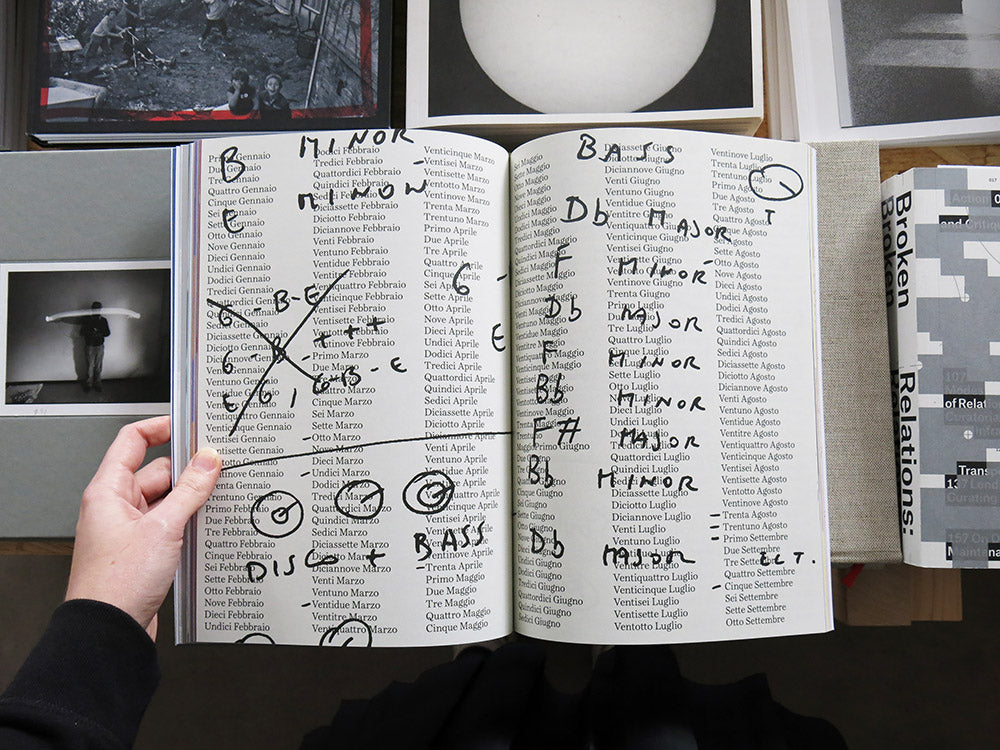 B MINOR
E MINOR
6 - B - E
6 - B - + +
E 6 1 6 - B - E
DISCO + BASS
BASS
T
Db MAJOR
6 - F MINOR
Db MAJOR
E F MINOR
Bb MINOR
F# MAJOR
Bb MINOR
Db MAJOR ECT.
Gennaio
Due Gennaio
Tre Gennaio
Quattro Gennaio
Cinque Gennaio
Sei Gennaio
Sette Gennaio
Otto Gennaio
Nove Gennaio
Dieci Gennaio
Undici Gennaio
Dodici Gennaio
Tredici Gennaio
Quattordici Gennaio
Gennaio
Sedici Gennaio
Diciassette Gennaio
Diciotto Gennaio
Gennaio
Venti Gennaio
Ventuno Gennaio
Ventidue Gennaio
Ventitre Gennaio
Ventiquattro Gennaio
Venticinque Gennaio
Ventisei Gennaio
Gennaio
Gennaio
Ventinove Gennaio
Trenta Gennaio
Trentuno Gennaio
Primo Febbraio
Due Febbraio
Tre Febbraio
Quattro Febbraio
Cinque Febbraio
Sei Febbraio
Sette Febbraio
Otto Febbraio
Nove Febbraio
Dieci Febbraio
Undici Febbraio
Dodici Febbraio
Tredici Febbraio
Quattordici Febbraio
Quindici Febbraio
Sedici Febbraio
Diciassette Febbraio
Diciotto Febbraio
Diciannove Febbraio
Venti Febbraio
Ventuno Febbraio
Ventidue Febbraio
Ventitre Febbraio
Febbraio
Venticinque Febbraio
Ventisei Febbraio
Ventisette Febbraio
Ventotto Febbraio
Ventinove Febbraio
Primo Marzo
Due Marzo
Tre Marzo
Marzo
Cinque Marzo
Sei Marzo
Sette Marzo
Otto Marzo
Nove Marzo
Dieci Marzo
Undici Marzo
Dodici Marzo
Tredici Marzo
Quattordici Marzo
Quindici Marzo
Sedici Marzo
Diciassette Marzo
Diciotto Marzo
Diciannove Marzo
Venti Marzo
Ventuno Marzo
Ventidue Marzo
Ventitre Marzo
Ventiquattro Marzo
Venticinque Marzo
Ventisei Marzo
Ventisette Marzo
Ventotto Marzo
Ventinove Marzo
Trenta Marzo
Trentuno Marzo
Primo Aprile
Due Aprile
Tre Aprile
Quattro Aprile
Cinque Aprile
Sei Aprile
Sette Aprile
Otto Aprile
Nove Aprile
Dieci Aprile
Undici Aprile
Dodici Aprile
Tredici Aprile
Quattordici Aprile
Quindici Aprile
Sedici Aprile
Diciassette Aprile
Diciotto Aprile
Diciannove Aprile
Venti Aprile
Ventuno Aprile
Ventidue Aprile
Ventitre Aprile
Aprile
Venticinque Aprile
Ventisei Aprile
Ventisette Aprile
Aprile
Ventinove Aprile
Trenta Aprile
Primo Maggio
Due Maggio
Tre Maggio
Quattro Maggio
Cinque Maggio
Sei Maggio
Sette Maggio
Otto Maggio
Nove Maggio
Dieci Maggio
Undici Maggio
Dodici Maggio
Tredici Maggio
Quattordici Maggio
Quindici Maggio
Sedici Maggio
Diciassette Maggio
Diciotto Maggio
Diciannove
Venti Maggio
Ventuno Maggio
Maggio
Ventitre Maggio
Ventiquattro Maggio
Maggio
Ventisei Maggio
Ventisette Maggio
Ventotto Maggio
Ventinove Maggio
Trenta Maggio
Maggio
Primo Giugno
Due Giugno
Tre Giugno
Quattro Giugno
Cinque Giugno
Sei Giugno
Sette Giugno
Otto Giugno
Nove Giugno
Dieci Giugno
Undici Giugno
Dodici Giugno
Tredici Giugno
Quattordici Giugno
Quindici Giugno
Sedici Giugno
Diciassette Giugno
Diciotto Giugno
Diciannove Giugno
Venti Giugno
Ventuno Giugno
Ventidue Giugno
Ventitre Giugno
Ventiquattro Giugno
Venticinque Giugno
Ventisei Giugno
Giugno
Giugno
Ventinove Giugno
Trenta Giugno
Primo Luglio
Due Luglio
Tre Luglio
Quattro Luglio
Cinque Luglio
Sei Luglio
Sette Luglio
Otto Luglio
Nove Luglio
Dieci Luglio
Undici Luglio
Luglio
Tredici Luglio
Quattordici Luglio
Quindici Luglio
Sedici Luglio
Diciassette Luglio
Diciotto Luglio
Diciannove Luglio
Venti Luglio
Ventuno Luglio
Ventidue Luglio
Luglio
Ventiquattro Luglio
Venticinque Luglio
Ventisei Luglio
Ventisette Luglio
Ventotto Luglio
Ventinove Luglio
Trenta Luglio
Trentuno Luglio
Primo Agosto
Due Agosto
Tre Agosto
Quattro Agosto
Cinque Agosto
Sei Agosto
Sette Agosto
Otto Agosto
Nove Agosto
Dieci Agosto
Undici Agosto
Dodici Agosto
Tredici Agosto
Quattordici Agosto
Quindici Agosto
Sedici Agosto
Diciassette Agosto
Diciotto Agosto
Diciannove Agosto
Venti Agosto
Ventuno Agosto
Ventidue Agosto
Ventitre Agosto
Ventiquattro Agosto
Venticinque Agosto
Ventisei Agosto
Ventisette Agosto
Ventotto Agosto
Ventinove Agosto
Trenta Agosto
Trentuno Agosto
Primo Settembre
Due Settembre
Tre Settembre
Quattro Settembre
Cinque Settembre
Sei Settembre
Sette Settembre
Otto Settembre
Broken Relations:
017
and
107
of Relat
Trans
157 On